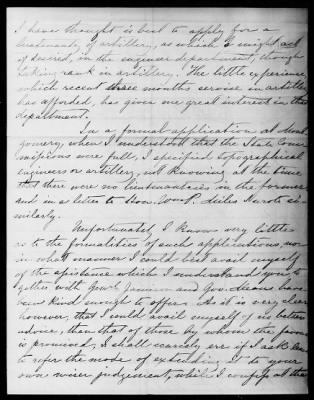 I have thought it best to apply for a
lieutenancy of artillery, as which I might act
if desired, in the engineer department, though
taking rank in artillery. The little experience
which recent three months service in artillery
has afforded, has given me great interest in that
department.
In a formal application at Mont
gomery, when I understood that the State Com
missions were full, I specified topographical
engineers or artillery, not knowing at the time
that there were no lieutenancies in the former
and in a letter to Hon. Wm P. Miles I wrote si
milarly.
Unfortunately I know very little
as to the formalities of such applications, nor
in what manner I could best avail myself
of the assistance which I understand you, to
gether with Genrl Jamison and Gov. Means have
been kind enough to offer. As it is very clear
however, that I could avail myself of no better
advice, than that of those by whom the favor
is promised, I shall scarcely err if I ask leave
to refer the mode of extending it to your
own wiser judgement, while I confess at the